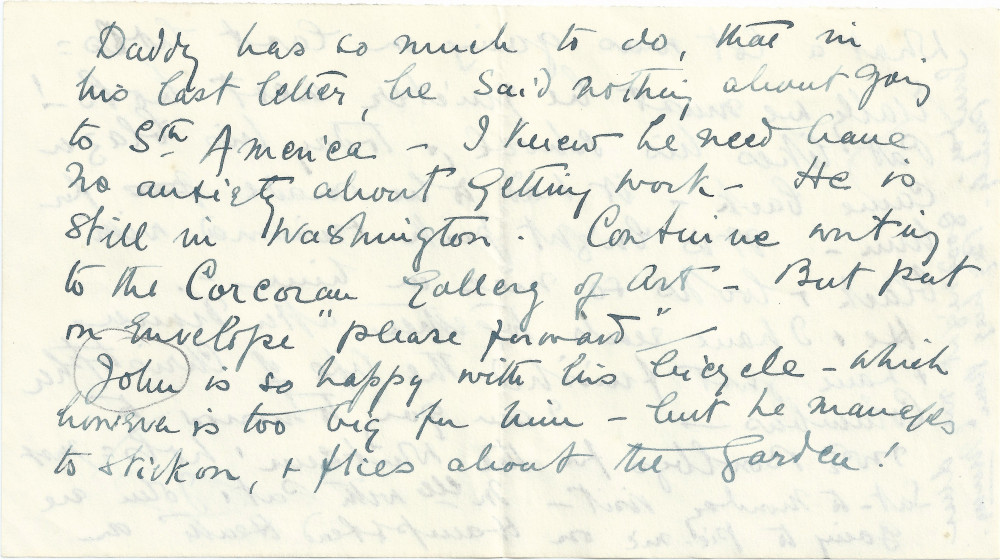 Daddy has so much to do, that in
his last letter, he said nothing about going
to Sth America – I knew he need have
no anxiety about getting work – He is
still in Washington. Continue writing
to the Corcoran Gallery of Art – But put
on Envelope "please forward" –
John is so happy with his bicycle – which
however is too big for him – but he manages
to stick on, + flies about the garden!